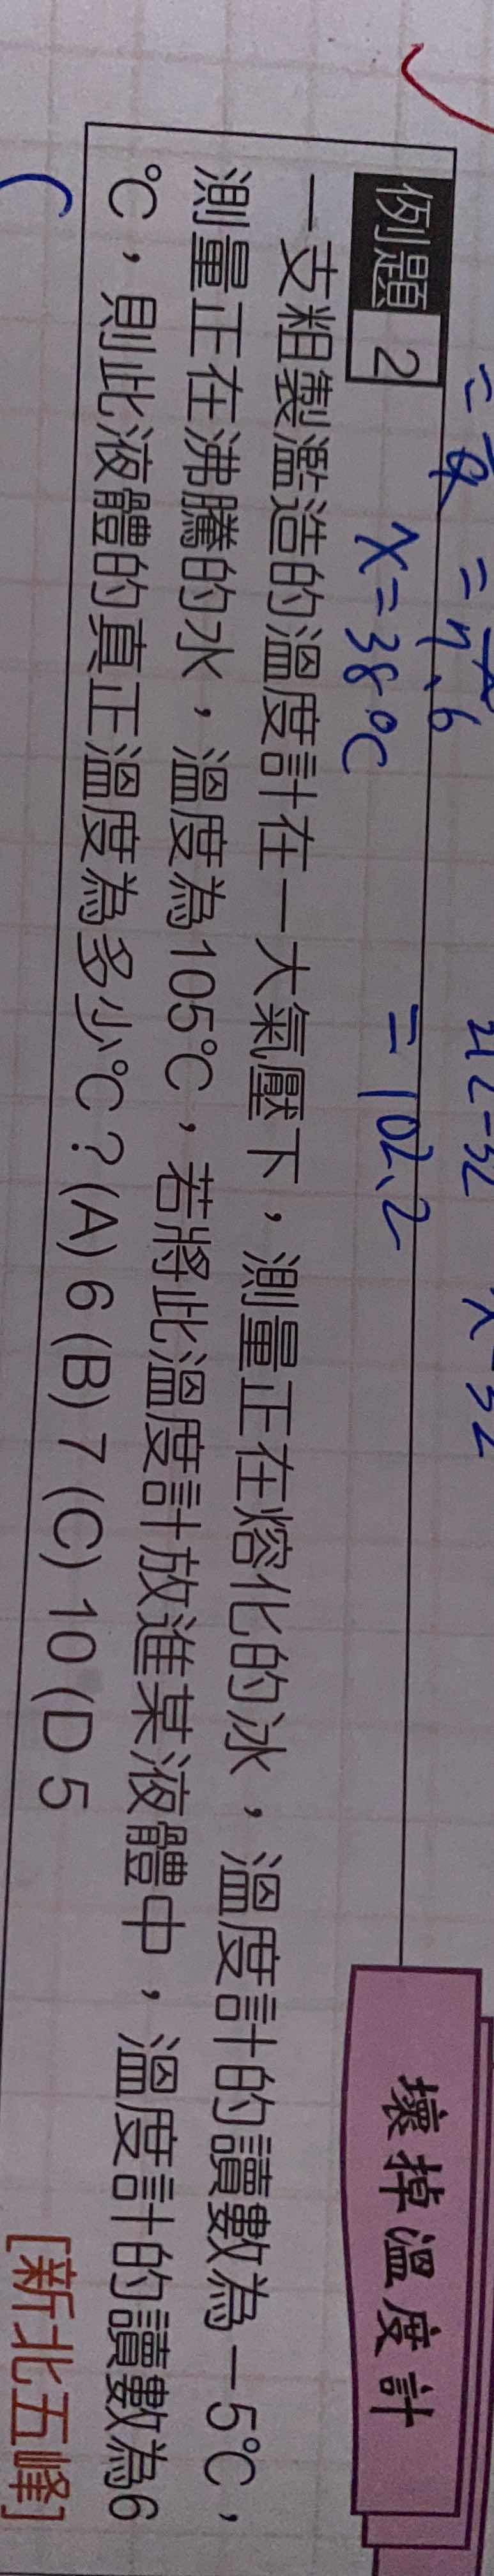 = 7.6
x-32
x=38℃
=102.2
壞掉溫度計
例題 2
一支粗製濫造的溫度計在一大氣壓下，測量正在熔化的冰，溫度計的讀數為－5℃，
測量正在沸騰的水，溫度為105℃，若將此溫度計放進某液體中，溫度計的讀數為6
℃，則此液體的真正溫度為多少℃？(A) 6 (B) 7 (C) 10 (D 5
[新北五峰]